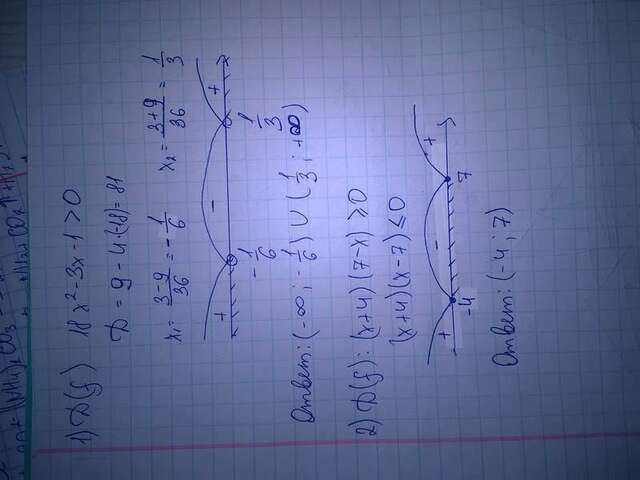 1) D(f) 18x²-3x-1>0
D = 9-4·(-18)=81
x₁=(3-9)/36=-1/6 x₂=(3+9)/36=1/3
+ - +
-1/6 1/3
Ответ: (-∞; -1/6) ∪ (1/3; +∞)
2) D(f): (x+4)(7-x)≥0
(x+4)(x-7)≤0
+ - +
-4 7
Ответ: (-4; 7)